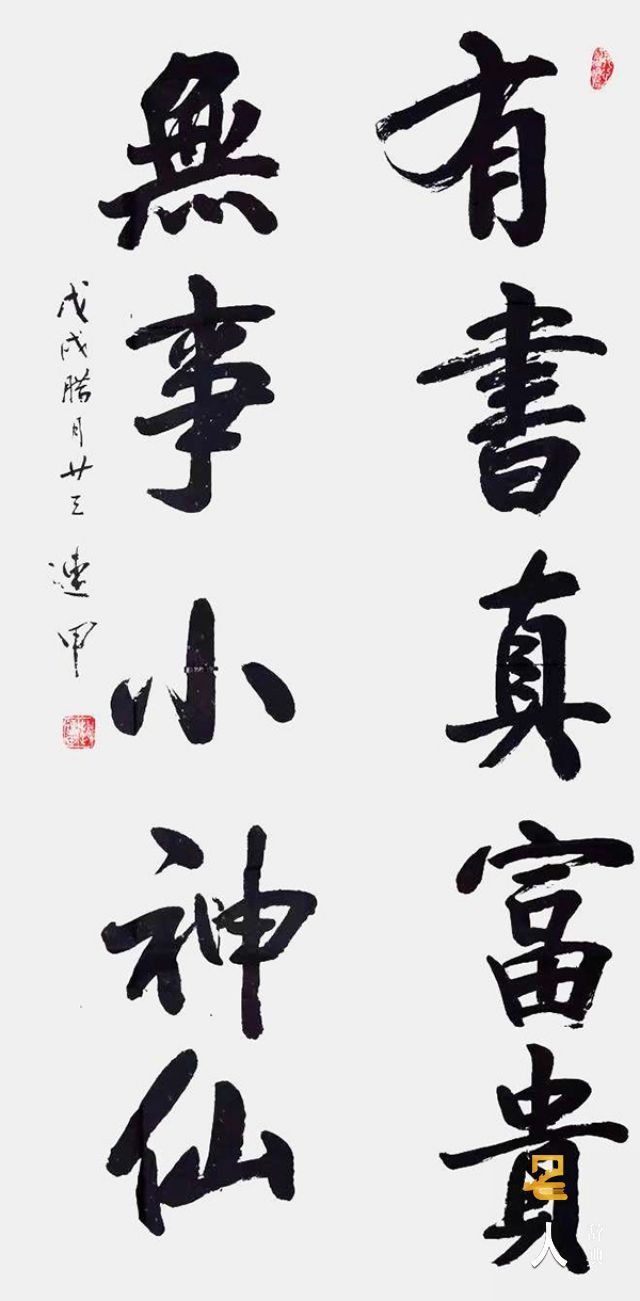 有書真富貴
無事小神仙
戊戌腊月廿三 連甲
人